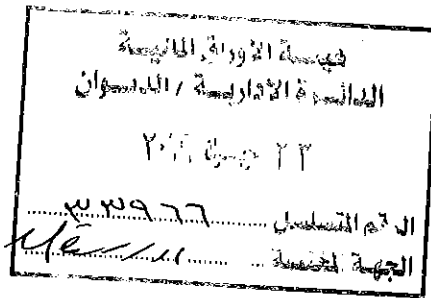 هيئة الأوراق المالية
الدائرة الادارية / الديوان
٢٣
الرقم المتسلسل ٣٣٩٦٦
الجهة المختصة